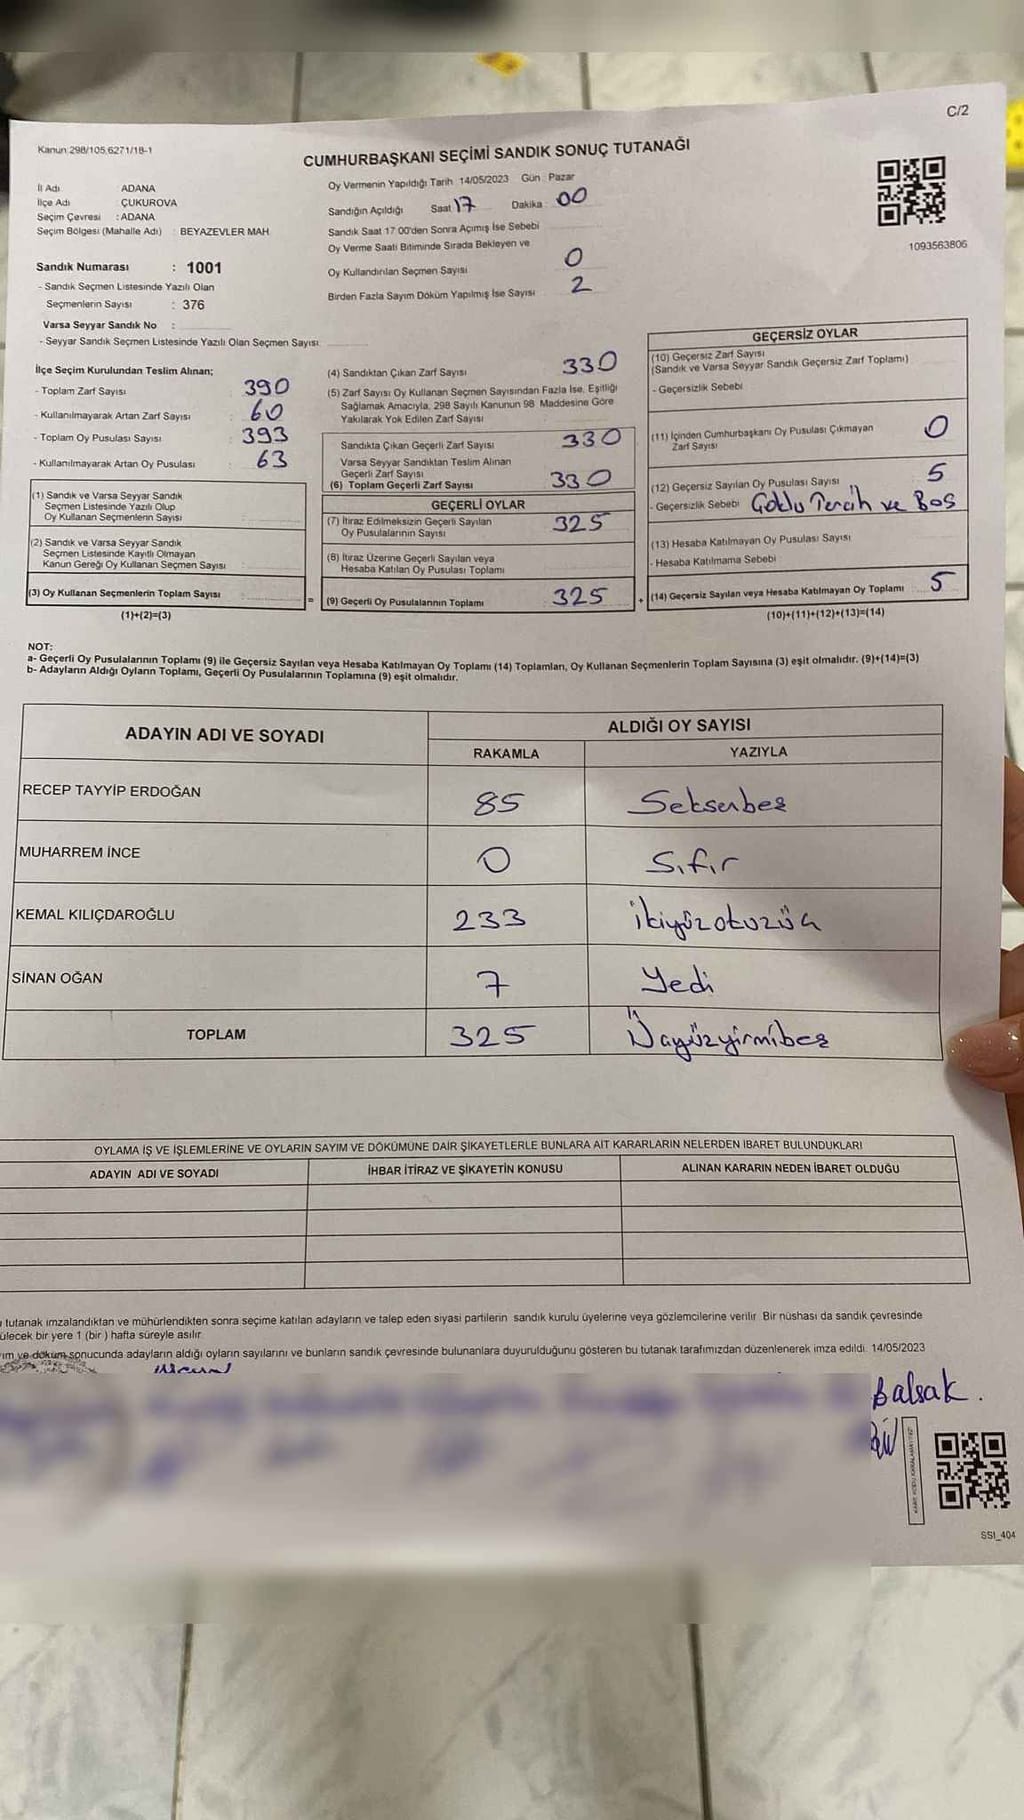 C/2
Kanun:298/105,6271/18-1
CUMHURBAŞKANI SEÇİMİ SANDIK SONUÇ TUTANAĞI
İl Adı ADANA
İlçe Adı ÇUKUROVA
Seçim Çevresi : ADANA
Seçim Bölgesi (Mahalle Adı) : BEYAZEVLER MAH
Sandık Numarası : 1001
- Sandık Seçmen Listesinde Yazılı Olan
Seçmenlerin Sayısı : 376
Varsa Seyyar Sandık No :
- Seyyar Sandık Seçmen Listesinde Yazılı Olan Seçmen Sayısı:
Oy Vermenin Yapıldığı Tarih 14/05/2023 Gün Pazar
Sandığın Açıldığı Saat 17 Dakika 00
Sandık Saat 17 00'den Sonra Açımış İse Sebebi
Oy Verme Saati Bitiminde Sırada Bekleyen ve
Oy Kullandırılan Seçmen Sayısı 0
Birden Fazla Sayım Döküm Yapılmış İse Sayısı 2
1093563806
İlçe Seçim Kurulundan Teslim Alınan;
- Toplam Zarf Sayısı : 390
- Kullanılmayarak Artan Zarf Sayısı : 60
- Toplam Oy Pusulası Sayısı : 393
- Kullanılmayarak Artan Oy Pusulası : 63
(1) Sandık ve Varsa Seyyar Sandık
Seçmen Listesinde Yazılı Olup
Oy Kullanan Seçmenlerin Sayısı
(2) Sandık ve Varsa Seyyar Sandık
Seçmen Listesinde Kayıtlı Olmayan
Kanun Gereği Oy Kullanan Seçmen Sayısı
(3) Oy Kullanan Seçmenlerin Toplam Sayısı =
(1)+(2)=(3)
(4) Sandıktan Çıkan Zarf Sayısı 330
(5) Zarf Sayısı Oy Kullanan Seçmen Sayısından Fazla İse, Eşitliği
Sağlamak Amacıyla, 298 Sayılı Kanunun 98 Maddesine Göre
Yakılarak Yok Edilen Zarf Sayısı
Sandıkta Çıkan Geçerli Zarf Sayısı 330
Varsa Seyyar Sandıktan Teslim Alınan
Geçerli Zarf Sayısı
(6) Toplam Geçerli Zarf Sayısı 330
GEÇERLİ OYLAR
(7) İtiraz Edilmeksizin Geçerli Sayılan
Oy Pusulalarının Sayısı 325
(8) İtiraz Üzerine Geçerli Sayılan veya
Hesaba Katılan Oy Pusulası Toplamı
(9) Geçerli Oy Pusulalarının Toplamı 325 +
GEÇERSİZ OYLAR
(10) Geçersiz Zarf Sayısı
(Sandık ve Varsa Seyyar Sandık Geçersiz Zarf Toplamı)
- Geçersizlik Sebebi
(11) İçinden Cumhurbaşkanı Oy Pusulası Çıkmayan
Zarf Sayısı 0
(12) Geçersiz Sayılan Oy Pusulası Sayısı 5
- Geçersizlik Sebebi Çoklu Tercih ve Boş
(13) Hesaba Katılmayan Oy Pusulası Sayısı
- Hesaba Katılmama Sebebi
(14) Geçersiz Sayılan veya Hesaba Katılmayan Oy Toplamı 5
(10)+(11)+(12)+(13)=(14)
NOT:
a- Geçerli Oy Pusulalarının Toplamı (9) ile Geçersiz Sayılan veya Hesaba Katılmayan Oy Toplamı (14) Toplamları, Oy Kullanan Seçmenlerin Toplam Sayısına (3) eşit olmalıdır. (9)+(14)=(3)
b- Adayların Aldığı Oyların Toplamı, Geçerli Oy Pusulalarının Toplamına (9) eşit olmalıdır.
ADAYIN ADI VE SOYADI ALDIĞI OY SAYISI
RAKAMLA YAZIYLA
RECEP TAYYİP ERDOĞAN 85 Seksenbeş
MUHARREM İNCE 0 Sıfır
KEMAL KILIÇDAROĞLU 233 ikiyüzotuzüç
SİNAN OĞAN 7 Yedi
TOPLAM 325 Üçyüzyirmibeş
OYLAMA İŞ VE İŞLEMLERİNE VE OYLARIN SAYIM VE DÖKÜMÜNE DAİR ŞİKAYETLERLE BUNLARA AİT KARARLARIN NELERDEN İBARET BULUNDUKLARI
ADAYIN ADI VE SOYADI İHBAR İTİRAZ VE ŞİKAYETİN KONUSU ALINAN KARARIN NEDEN İBARET OLDUĞU
tutanak imzalandıktan ve mühürlendikten sonra seçime katılan adayların ve talep eden siyasi partilerin sandık kurulu üyelerine veya gözlemcilerine verilir. Bir nüshası da sandık çevresinde
ülecek bir yere 1 (bir) hafta süreyle asılır
ım ve döküm sonucunda adayların aldığı oyların sayılarını ve bunların sandık çevresinde bulunanlara duyurulduğunu gösteren bu tutanak tarafımızdan düzenlenerek imza edildi. 14/05/2023
Balsak.
SSI_404